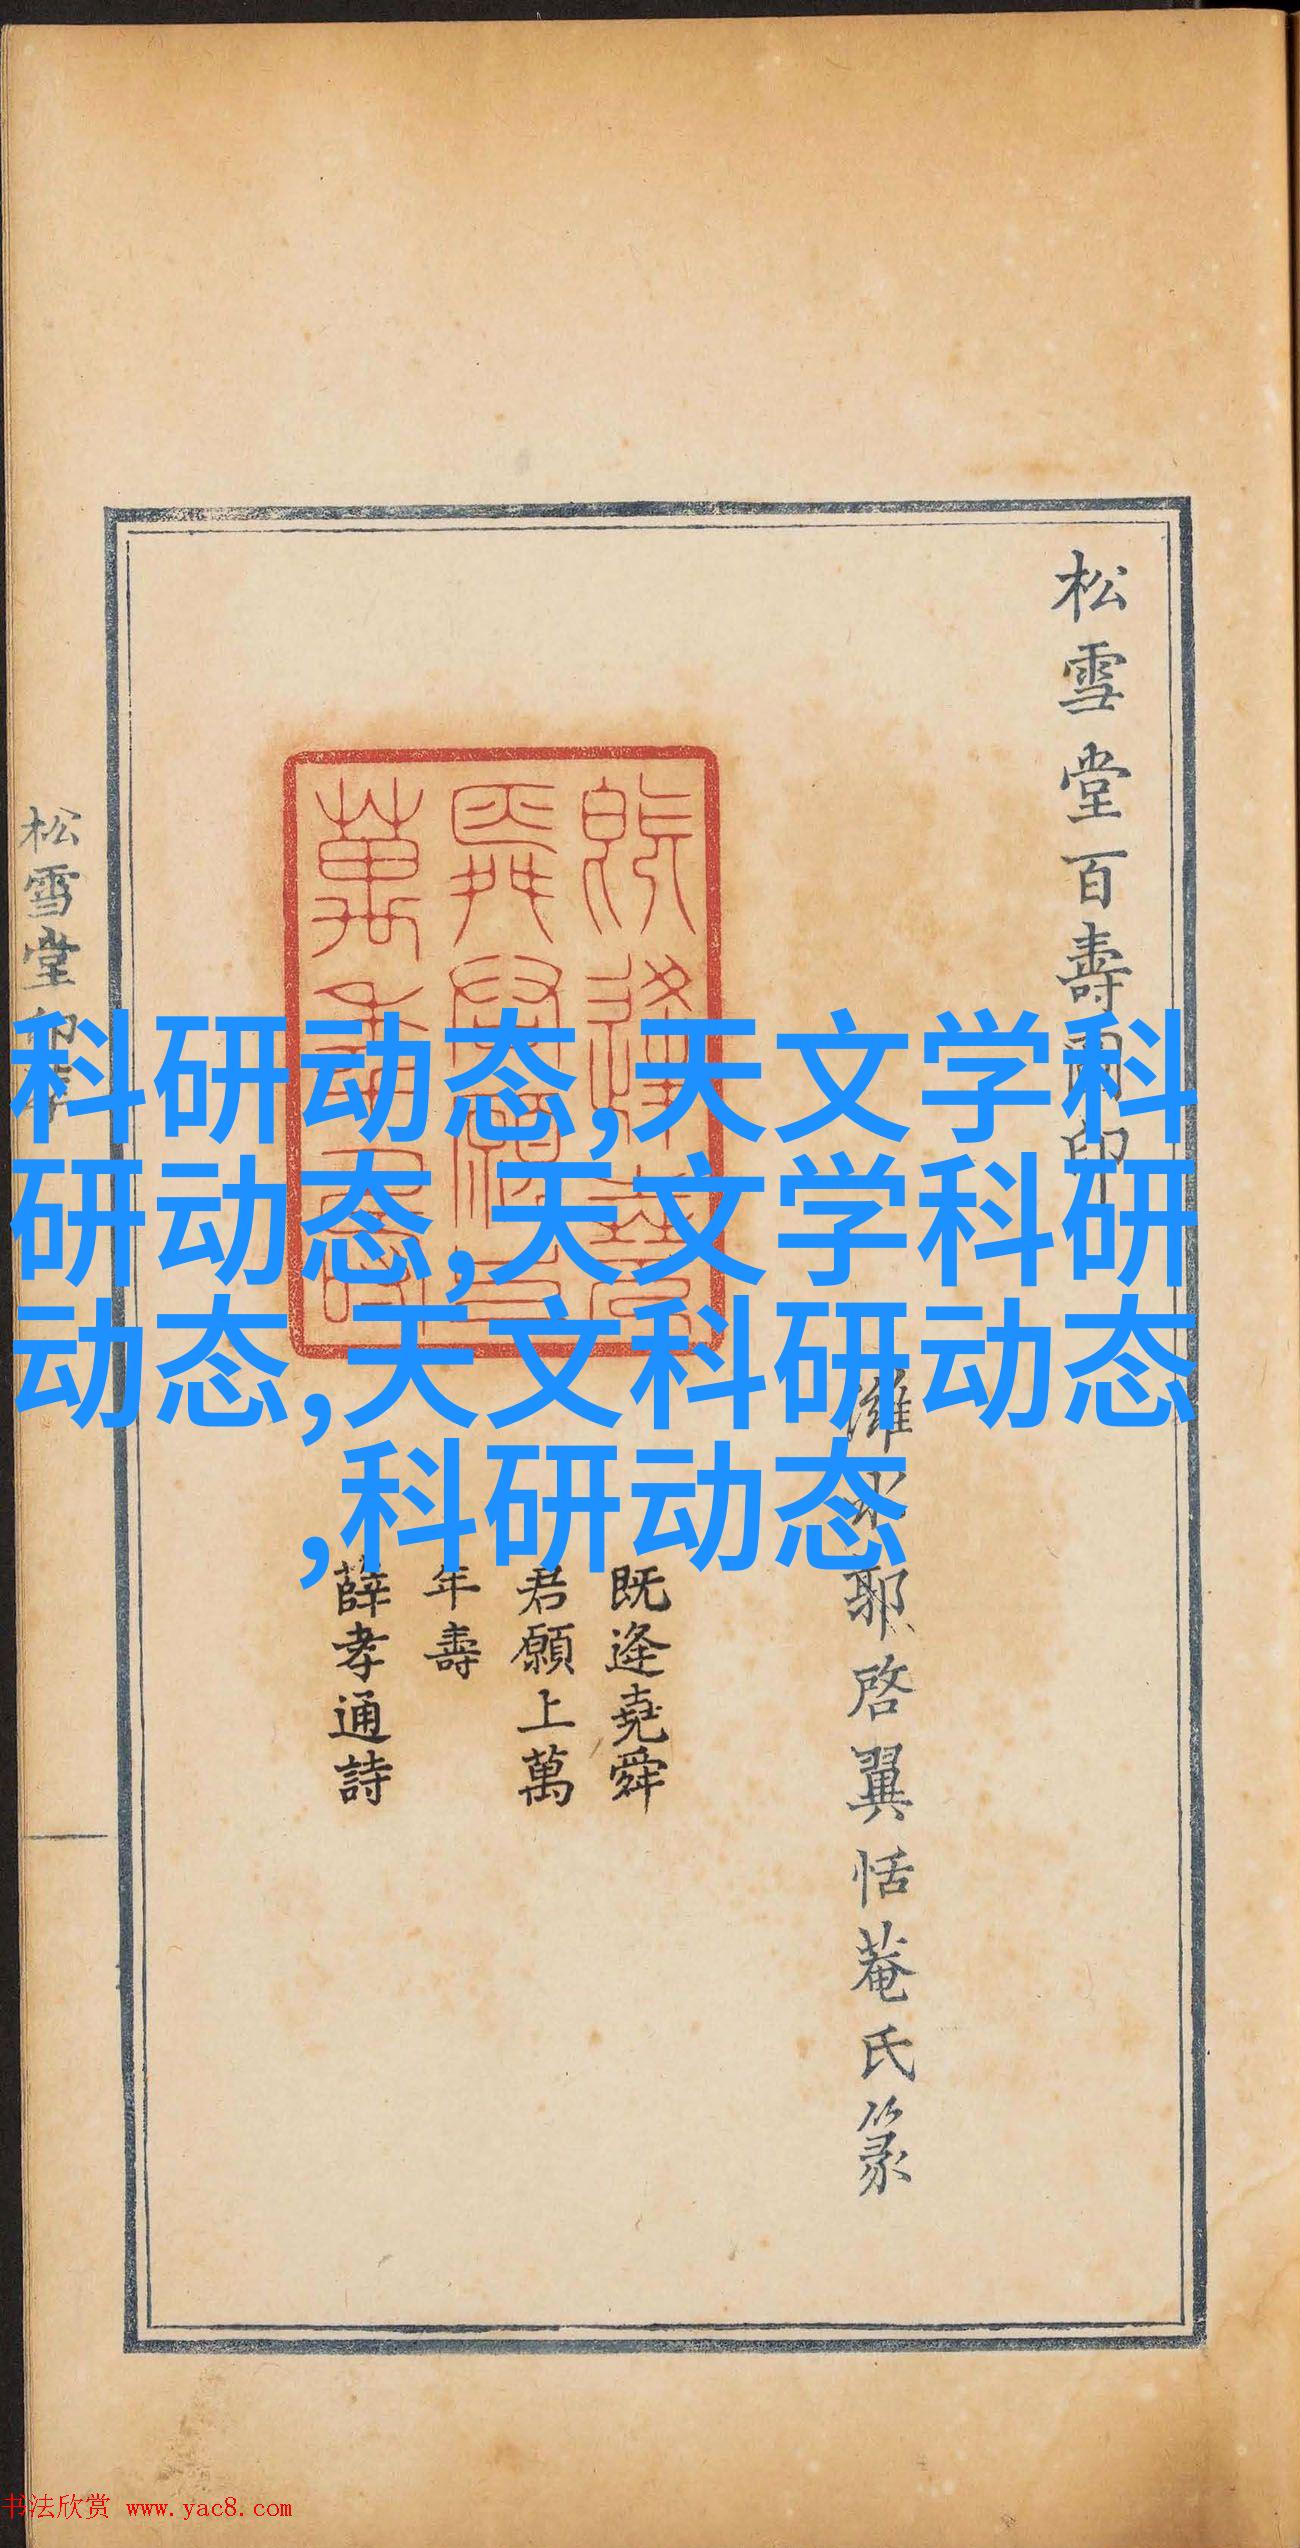 松雪堂百壽
濰水郭啓翼恬菴氏篆
既逢堯舜
君願上萬
年壽
薛孝通詩
松雪堂印
科研动态,天文学科
研动态,天文学科研
动态,天文科研动态
,科研动态
书法欣赏 www.yac8.com